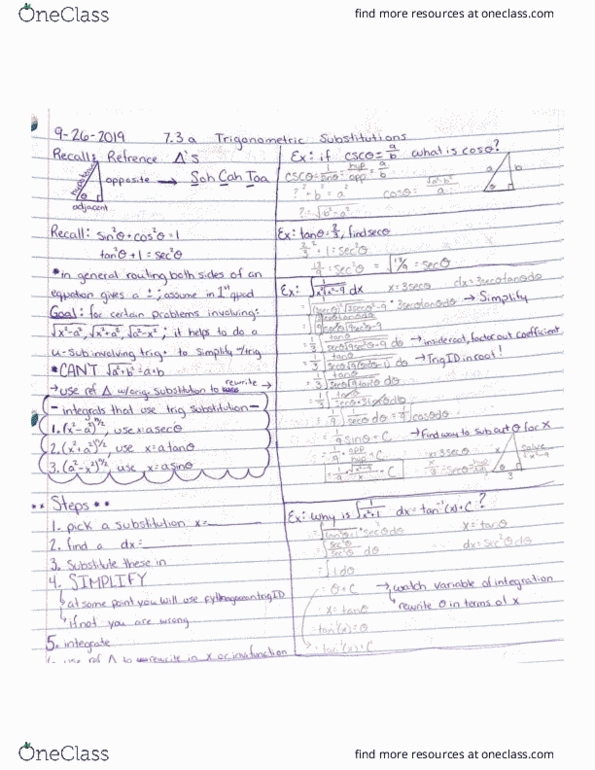 OneClass
find more resources at oneclass.com
9-26-2019 7.3a Trigonometric Substitutions
Recall: Refrence Δ's
hypotenuse
opposite → Soh Cah Toa
θ
adjacent
Recall: sin²θ + cos²θ = 1
tan²θ + 1 = sec²θ
*in general routing both sides of an
equation gives a ±; assume in 1st quad
Goal: for certain problems involving:
√x²-a², √x²+a², √a²-x²; it helps to do a
u-sub involving trig • to simplify
• CAN'T √a²+b² = a+b
→ use ref Δ w/ orig. substitution to rewrite →
- integrals that use trig substitution -
1. (x²-a²)ⁿ/², use x=a secθ
2. (x²+a²)ⁿ/², use x=a tanθ
3. (a²-x²)ⁿ/², use x=a sinθ
** Steps **
1. pick a substitution x=
2. find a dx=
3. Substitute these in
4. SIMPLIFY
↳ at some point you will use pythagorean trig ID
↳ if not you are wrong
5. integrate
use ref Δ to rewrite in x or inv function
Ex: if cscθ = a/b what is cosθ?
cscθ = 1/sinθ = hyp/opp = a/b
?² + b² = a²
cosθ =
Ex: tanθ = 2/3, find secθ
+ 1 = sec²θ
13/9 = sec²θ = √13/9 = secθ
Ex: ∫ 1/(x²√x²-9) dx x=3secθ dx=3secθtanθdθ
→ Simplify
→ inside root, factor out coefficient
→ Trig ID in root!
= 1/9 ∫ 1/secθ dθ = 1/9 ∫ cosθdθ
= 1/9 sinθ + C → Find way to sub out θ for x
x=3secθ
Ex: Why is ∫ 1/(x²+1) dx = tan⁻¹(x)+C?
x=tanθ
dx=sec²θdθ
= ∫ sec²θ/sec²θ dθ
= ∫ 1dθ
= θ + C → watch variable of integration
↳ rewrite θ in terms of x
x = tanθ
tan⁻¹(x) = θ
= tan⁻¹(x) + C
OneClass
find more resources at oneclass.com